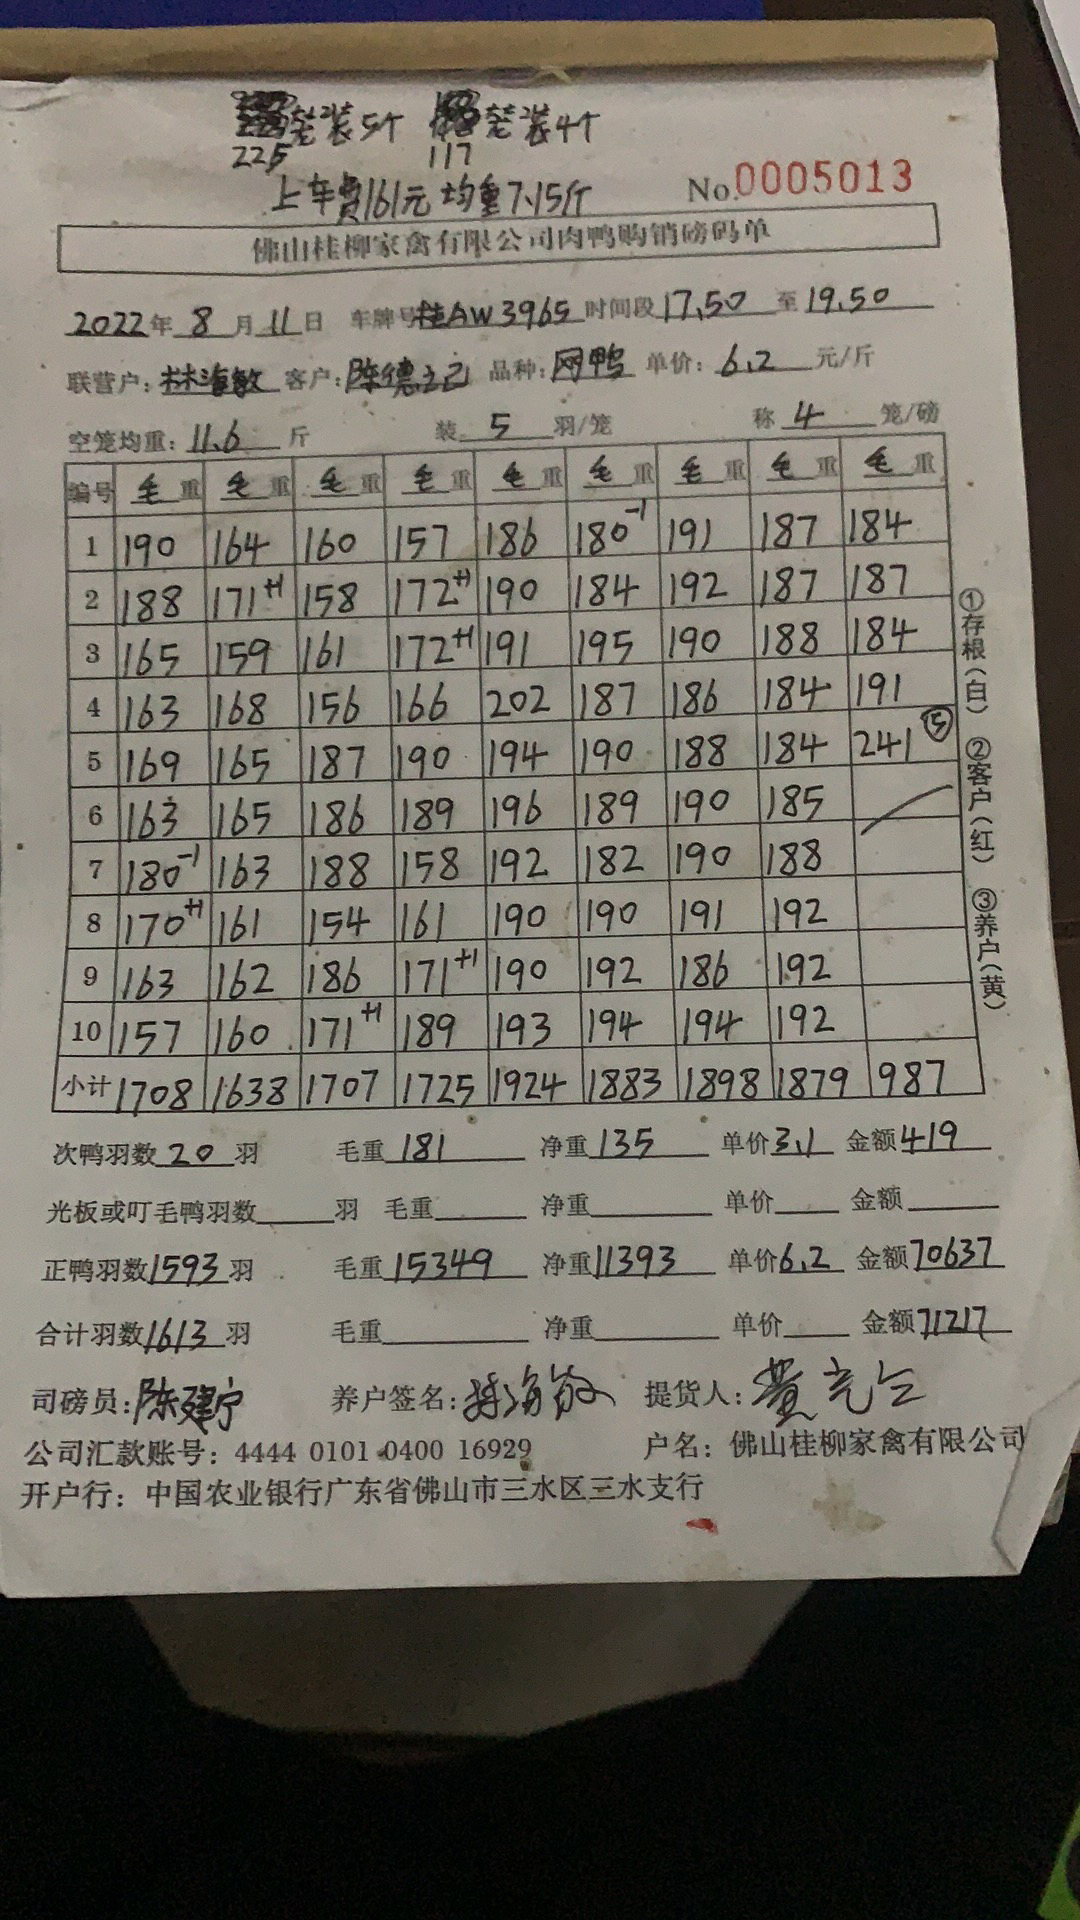 笼装5个 笼装4个
225 117
上车费161元 均重7.15斤
No.0005013
佛山桂柳家禽有限公司肉鸭购销磅码单
2022年8月11日 车牌号桂AW3965时间段17.50至19.50
联营户:林海敏 客户:陈德 品种:网鸭 单价:6.2元/斤
空笼均重:11.6斤 装5羽/笼 称4笼/磅
编号 毛重 毛重 毛重 毛重 毛重 毛重 毛重 毛重 毛重
1 190 164 160 157 186 180-1 191 187 184
2 188 171+1 158 172+1 190 184 192 187 187
3 165 159 161 172+1 191 195 190 188 184
4 163 168 156 166 202 187 186 184 191
5 169 165 187 190 194 190 188 184 241⑤
6 163 165 186 189 196 189 190 185
7 180-1 163 188 158 192 182 190 188
8 170+1 161 154 161 190 190 191 192
9 163 162 186 171+1 190 192 186 192
10 157 160 171+1 189 193 194 194 192
小计 1708 1638 1707 1725 1924 1883 1898 1879 987
①存根(白) ②客户(红) ③养户(黄)
次鸭羽数20羽 毛重181 净重135 单价3.1 金额419
光板或叮毛鸭羽数 羽 毛重 净重 单价 金额
正鸭羽数1593羽 毛重15349 净重11393 单价6.2 金额70637
合计羽数1613羽 毛重 净重 单价 金额71217
司磅员:陈建宁 养户签名:林海敏 提货人:黄
公司汇款账号:4444 0101 0400 16929 户名:佛山桂柳家禽有限公司
开户行:中国农业银行广东省佛山市三水区三水支行